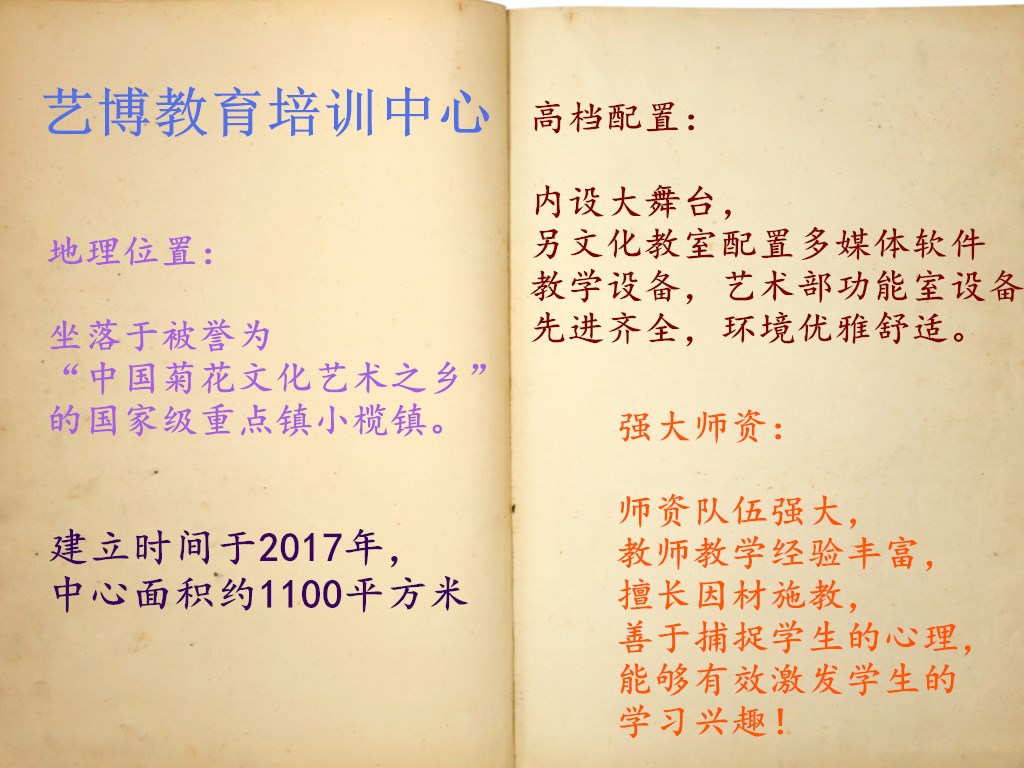 艺博教育培训中心
地理位置：
坐落于被誉为
“中国菊花文化艺术之乡”
的国家级重点镇小榄镇。
建立时间于2017年，
中心面积约1100平方米
高档配置：
内设大舞台，
另文化教室配置多媒体软件
教学设备，艺术部功能室设备
先进齐全，环境优雅舒适。
强大师资：
师资队伍强大，
教师教学经验丰富，
擅长因材施教，
善于捕捉学生的心理，
能够有效激发学生的
学习兴趣！